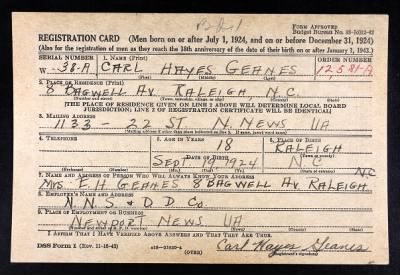 FORM APPROVED
REGISTRATION CARD (Men born on or after July 1, 1924, and on or before December 31, 1924)
(Also for the registration of men as they reach the 18th anniversary of the date of their birth on or after January 1, 1943.)
SERIAL NUMBER 1. NAME (Print) ORDER NUMBER
W -38-A CARL HAYES GEANES 12581-A
(First) (Middle) (Last)
2. PLACE OF RESIDENCE (Print)
8 BAGWELL AV RALEIGH, N.C.
[THE PLACE OF RESIDENCE GIVEN ON LINE 2 ABOVE WILL DETERMINE LOCAL BOARD
JURISDICTION; LINE 2 OF REGISTRATION CERTIFICATE WILL BE IDENTICAL]
3. MAILING ADDRESS
1133 - 22 ST N. NEWS VA
4. TELEPHONE 5. AGE IN YEARS 6. PLACE OF BIRTH
18 RALEIGH
DATE OF BIRTH
SEPT 19 1924 N C
7. NAME AND ADDRESS OF PERSON WHO WILL ALWAYS KNOW YOUR ADDRESS N.C
MRS. E. H GEANES 8 BAGWELL AV. RALEIGH
8. EMPLOYER'S NAME AND ADDRESS
N. N. S & D D Co.
9. PLACE OF EMPLOYMENT OR BUSINESS
NEWPORT NEWS VA
I AFFIRM THAT I HAVE VERIFIED ABOVE ANSWERS AND THAT THEY ARE TRUE.
DSS Form 1 (Rev. 11-16-42) (OVER) Carl Hayes Geanes